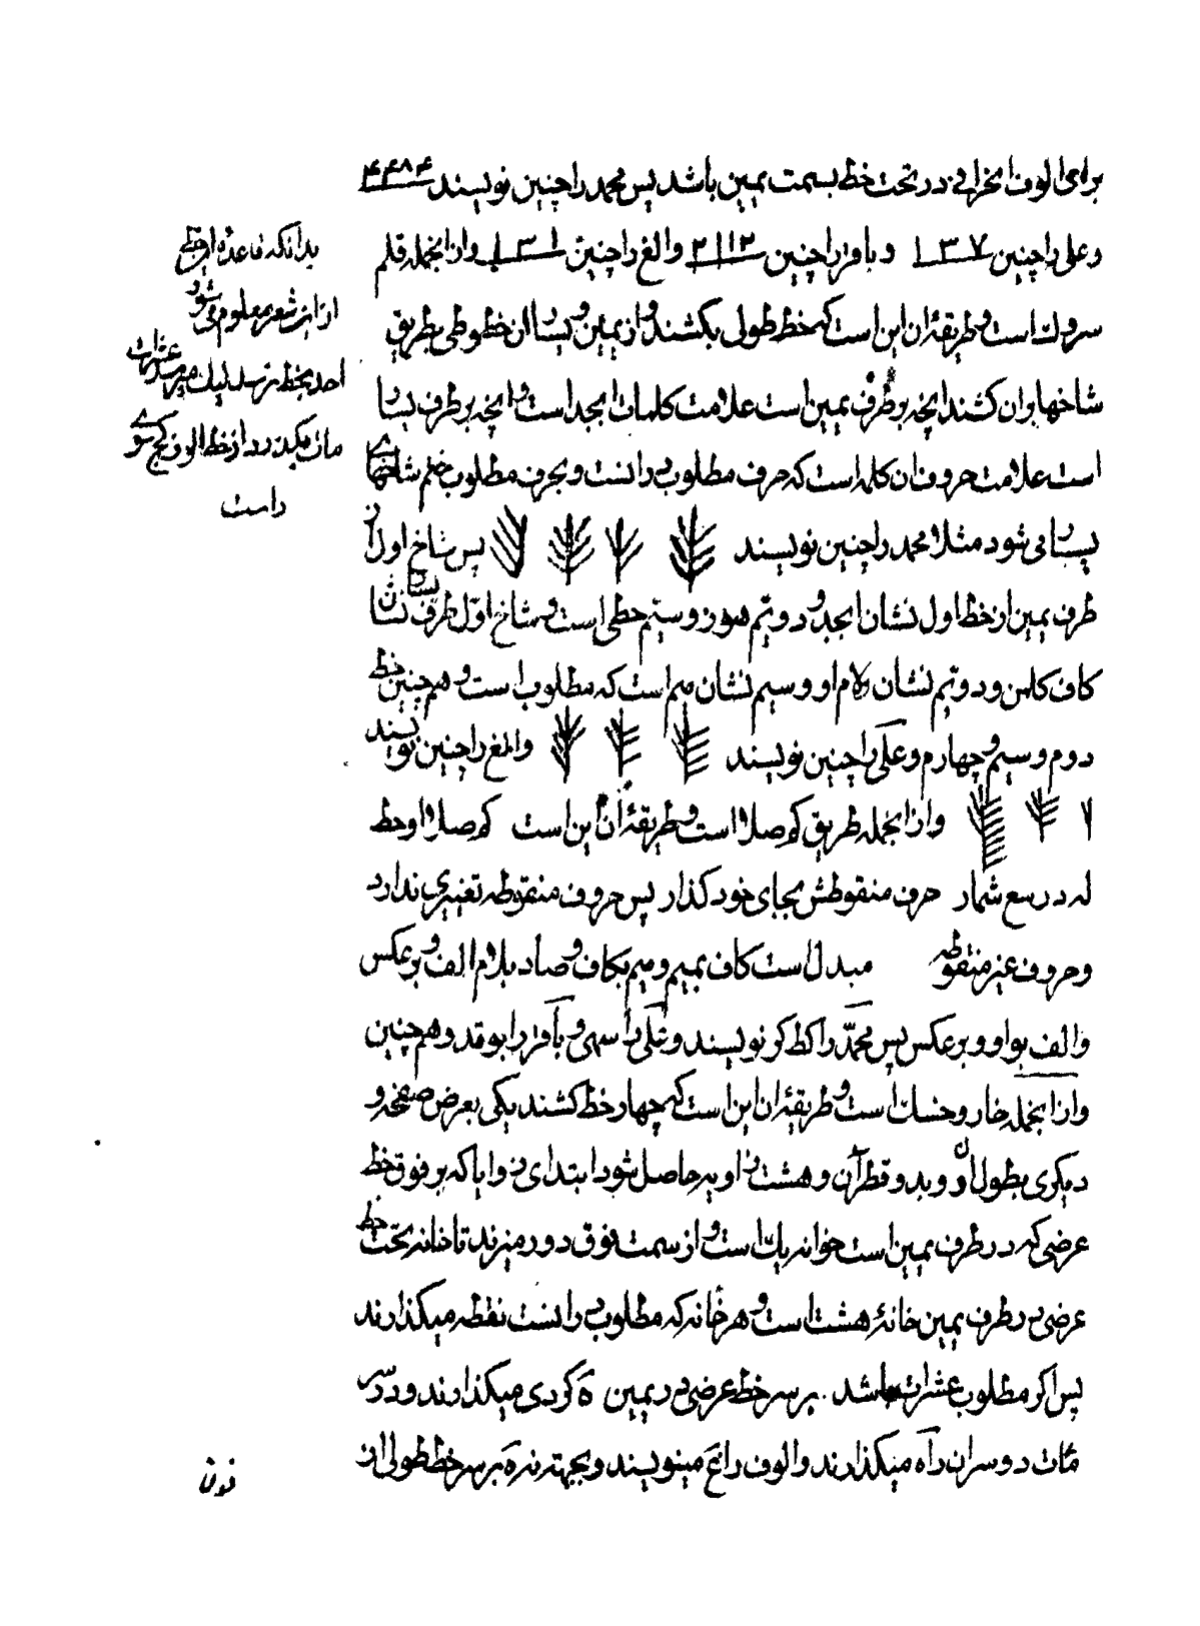 برای الوف انحرافی در تحت خط بسمت یمین باشد پس محمد را چنین نویسند ۴۴۸۴
و علی را چنین ۱۳۷ و باقر را چنین ۲۱۱۲ والغ را چنین ۱۳۱ و از انجمله قلم
سرو است و طریقهٔ ان این است که خط طولی بکشند و از یمین و یسار ان خطوطی بطریق
شاخها بران کشند انچه بر طرف یمین است علامت کلمات ابجد است و انچه بر طرف یسار
است علامت حروف ان کلمه است که حرف مطلوب در انست و بحرف مطلوب ختم شاخهای
یساری شود مثلا محمد را چنین نویسند پس شاخ اول از
طرف یمین از خط اول نشان ابجد و دویم هوز و سیم حطی است و شاخ اوّل طرف یسار نشان
کاف کلمن و دویم نشان لام او و سیم نشان میم است که مطلوب است و هم چنین خط
دوم و سیم و چهارم و علی را چنین نویسند والغ را چنین نویسند
و از انجمله طریق کم صلا است و طریقهٔ ان این است کم صلا او حط
له در سع شمار حرف منقوطش بجای خود کذار پس حروف منقوطه تغییری ندارد
و حروف غیر منقوطه مبدل است کاف بمیم و میم بکاف و صاد بلام الف و بر عکس
والف بواو و بر عکس پس محمّد را کط کر نویسند و علی را سهی و باقر را بوقد و هم چنین
و از انجمله خار و خسک است و طریقهٔ ان این است که چهار خط کشند یکی بعرض صفحه و
دیکری بطول ان و دو بدو قطر آن و هشت زاویه حاصل شود ابتدای زوایا که بر فوق خط
عرضی که در طرف یمین است خوانه یک است و از سمت فوق دور میزند تا خانه تحت خط
عرضی در طرف یمین خانهٔ هشت است و هر خانه که مطلوب در انست نقطه میکذارند
پس اکر مطلوب عشرات باشد بر سر خط عرضی در یمین ه کردی میکذارند و در سر
مآت دو سر ان راه میکذارند و الوف را غ مینویسند و بجهته نره بر سر خط طولی از
بدانکه قاعده این خط
از این شعر معلوم می شود
احد بخط نرسد لیک میرسد عشرات
مات میکذرد از خط الوف کج سوی
راست
فوق